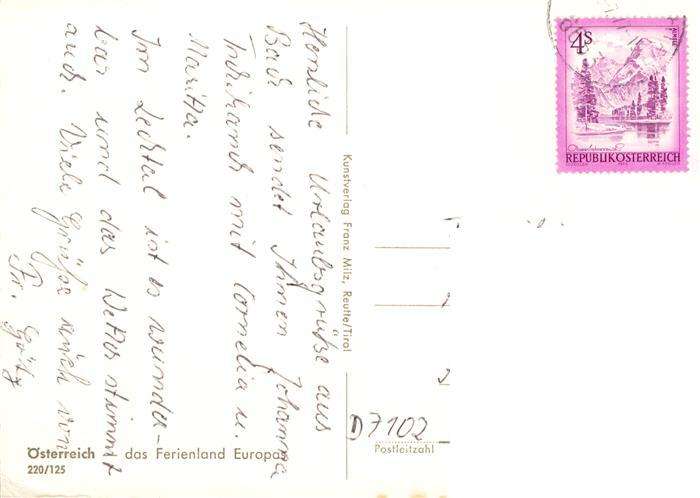 Herzliche Urlaubsgrüße aus
Bach sendet Ihnen Johanna
mit Cornelia u.
Maritta.
Im Lechtal ist es wunder-
bar und das Wetter stimmt
auch. Viele Grüße auch von
Fr. Götz
Kunstverlag Franz Milz, Reutte/Tirol
4S
ALMSEE
REPUBLIK ÖSTERREICH
D7102
Postleitzahl
Österreich das Ferienland Europas
220/125